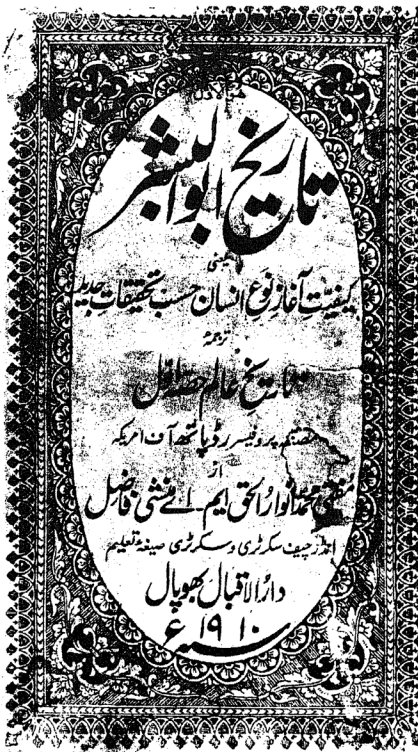 تاریخ ابوالبشر
یعنی
کیفیت آغاز نوع انسان حسب تحقیقات جدید
ترجمہ
تاریخ عالم حصہ اول
مصنفہ پروفیسر رڈپاتھ آف امریکہ
از
مفتی محمد انوارالحق ایم۔اے منشی فاضل
انڈر چیف سکرٹری و سکرٹری صیغۂ تعلیم
دارالاقبال بھوپال
سنہ ۱۹۱۰ ع